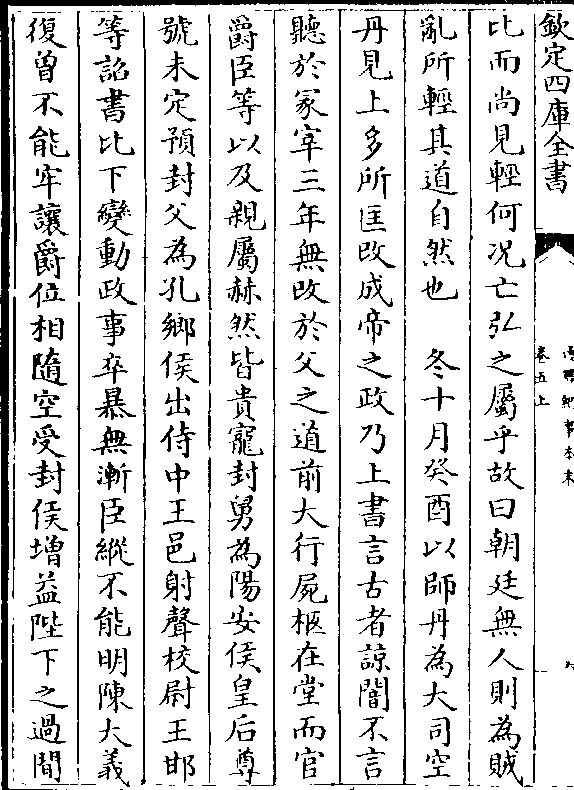 欽定四庫全書
卷五上
比而尚見輕何况亡弘之屬乎故曰朝廷無人則為賊
亂所輕其道自然也　冬十月癸酉以師丹為大司空
丹見上多所匡改成帝之政乃上書言古者諒闇不言
聽於冡宰三年無改於父之道前大行屍柩在堂而官
爵臣等以及親屬赫然皆貴寵封舅為陽安侯皇后尊
號未定預封父為孔鄉侯出侍中王邑射聲校尉王邯
等詔書比下變動政事卒暴無漸臣縱不能明陳大義
復曾不能牢讓爵位相隨空受封侯增益陛下之過間